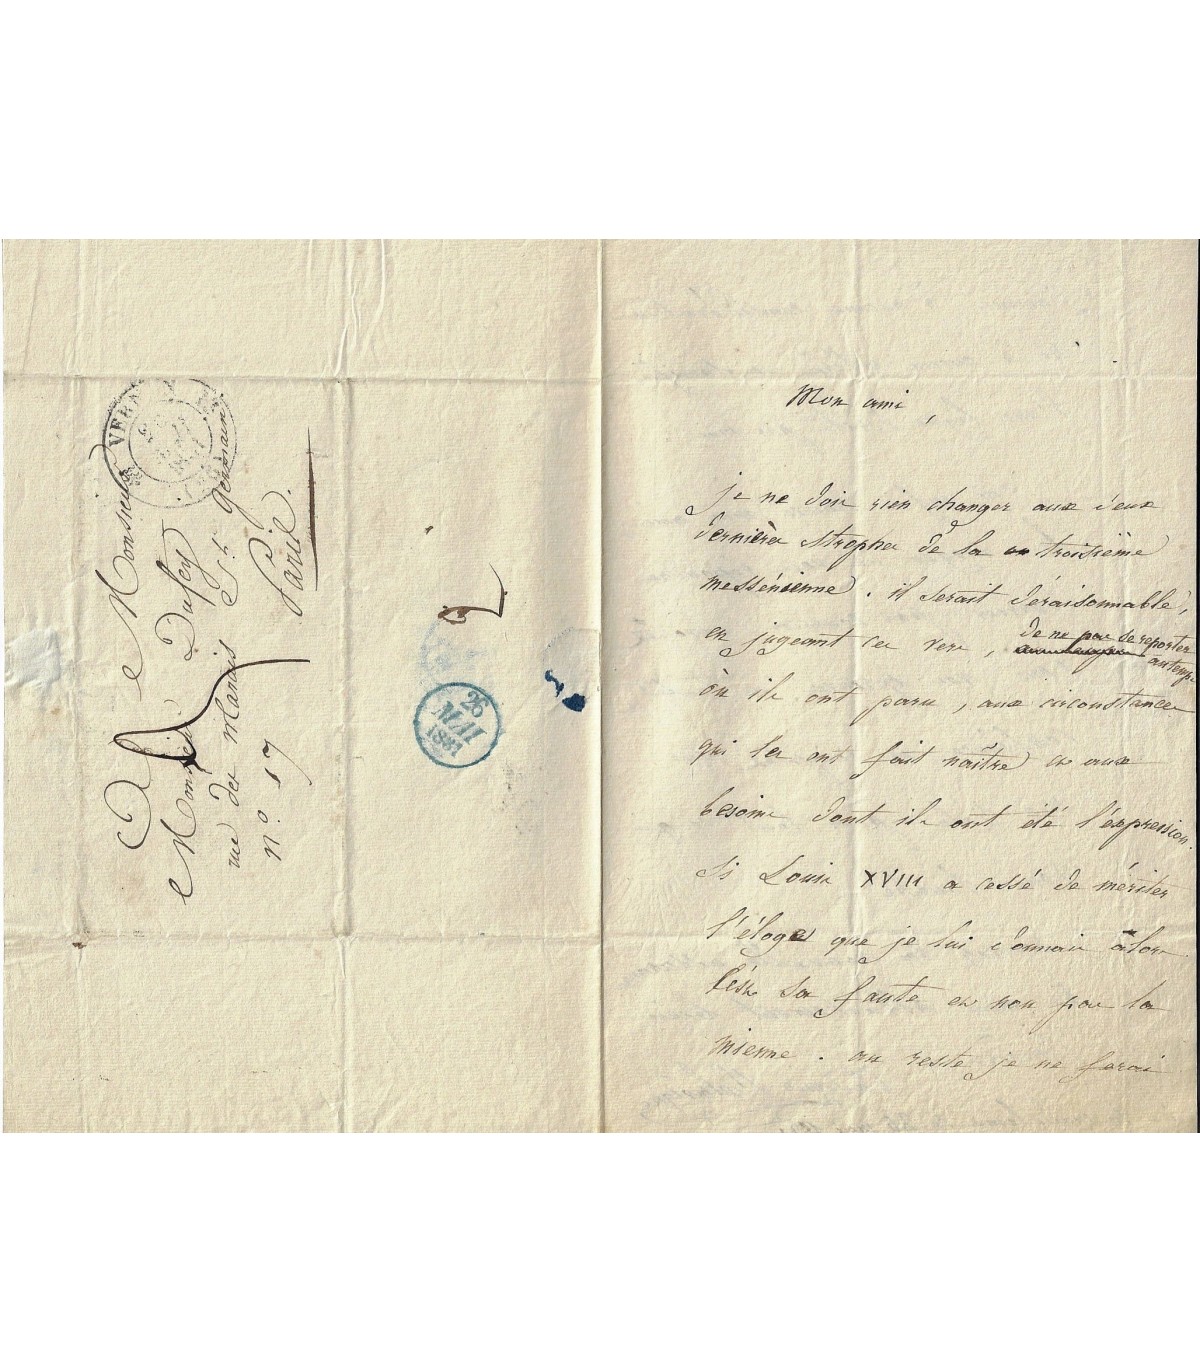 A Monsieur
Monsieur Dufey
rue des Marais St. germain
N°. 17
Paris.
VERN
2
26
MAI
1831
Mon ami,
je ne dois rien changer aux deux
dernières strophes de la troisième
messénienne. il serait déraisonnable,
en jugeant ces vers, de ne pas se reporter
au temps
où ils ont paru, aux circonstances
qui les ont fait naître et aux
besoins dont ils ont été l'expression.
Si Louis XVIII a cessé de mériter
l'éloge que je lui donnais alors
c'est sa faute et non pas la
mienne. au reste je ne ferai